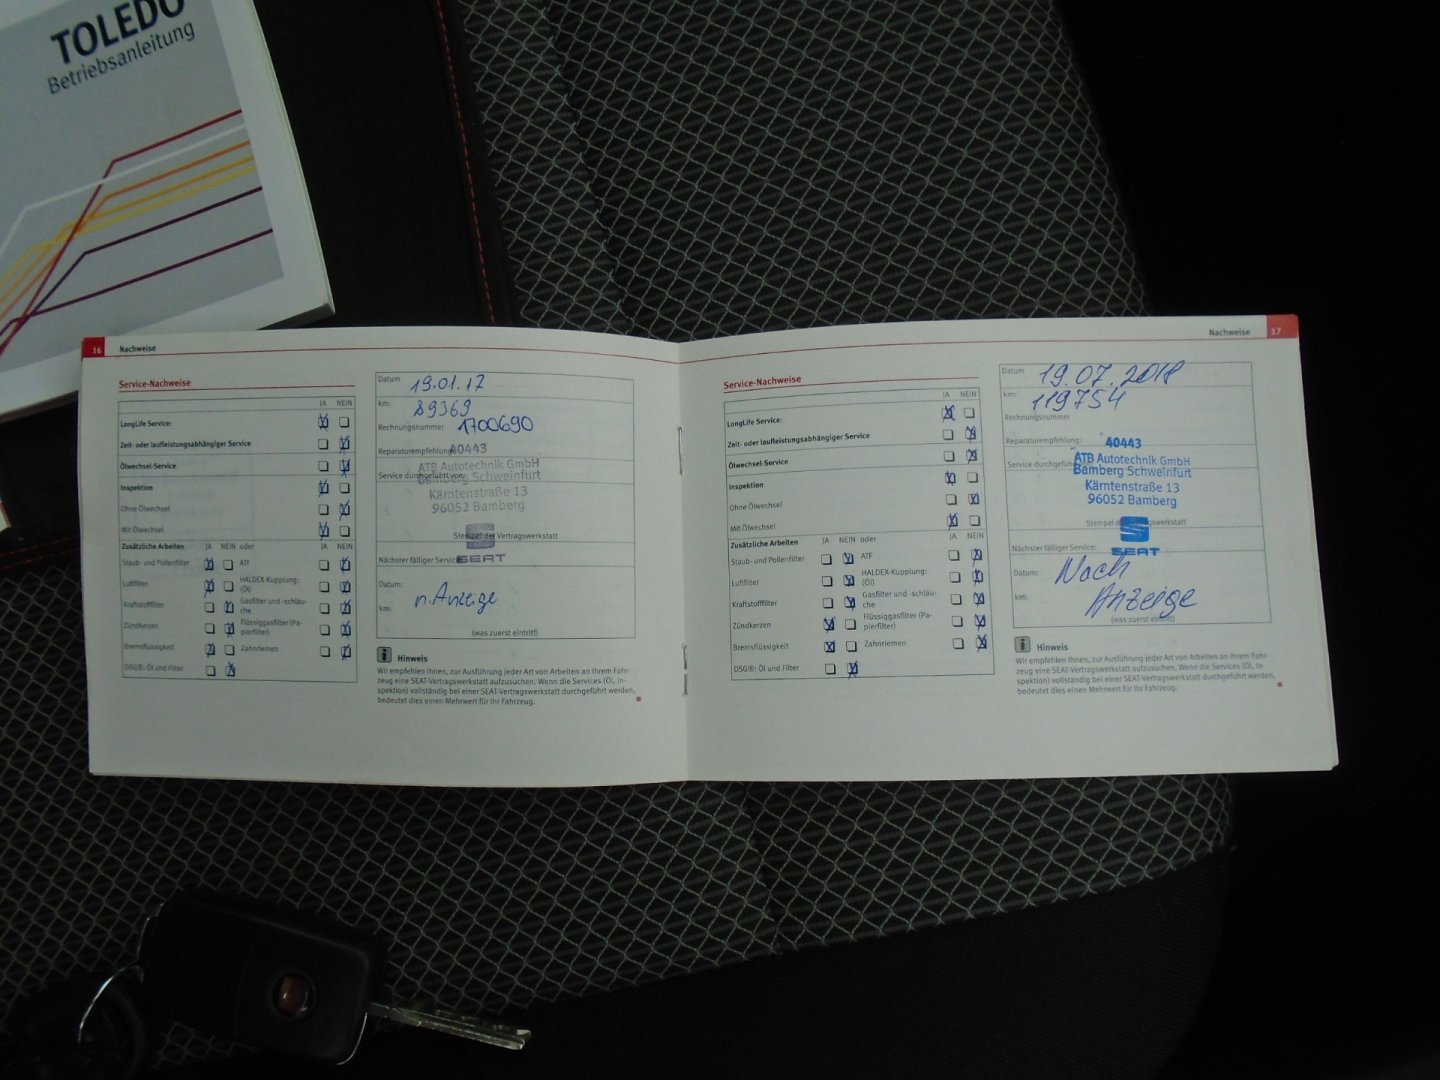 TOLEDO
Betriebsanleitung
16 Nachweise
Service-Nachweise
JA NEIN
LongLife Service:
Zeit- oder laufleistungsabhängiger Service
Ölwechsel-Service
Inspektion
Ohne Ölwechsel
Mit Ölwechsel
Zusätzliche Arbeiten JA NEIN oder JA NEIN
Staub- und Pollenfilter ATF
Luftfilter HALDEX-Kupplung: (Öl)
Kraftstofffilter Gasfilter und -schläuche
Zündkerzen Flüssiggasfilter (Papierfilter)
Bremsflüssigkeit Zahnriemen
DSG®: Öl und Filter
Datum 19.01.17
km: 89369
Rechnungsnummer 1700690
Reparaturempfehlung: 40443
ATB Autotechnik GmbH
Service durchgeführt von: Bamberg Schweinfurt
Kärntenstraße 13
96052 Bamberg
Stempel der Vertragswerkstatt
SEAT
Nächster fälliger Service:
Datum:
n. Anzeige
km:
(was zuerst eintritt)
i Hinweis
Wir empfehlen Ihnen, zur Ausführung jeder Art von Arbeiten an Ihrem Fahr-
zeug eine SEAT-Vertragswerkstatt aufzusuchen. Wenn die Services (Öl, In-
spektion) vollständig bei einer SEAT-Vertragswerkstatt durchgeführt werden,
bedeutet dies einen Mehrwert für Ihr Fahrzeug.
Nachweise 17
Service-Nachweise
JA NEIN
LongLife Service:
Zeit- oder laufleistungsabhängiger Service
Ölwechsel-Service
Inspektion
Ohne Ölwechsel
Mit Ölwechsel
Zusätzliche Arbeiten JA NEIN oder JA NEIN
Staub- und Pollenfilter ATF
Luftfilter HALDEX-Kupplung: (Öl)
Kraftstofffilter Gasfilter und -schläuche
Zündkerzen Flüssiggasfilter (Papierfilter)
Bremsflüssigkeit Zahnriemen
DSG®: Öl und Filter
Datum 19.07.2018
km: 119754
Rechnungsnummer
Reparaturempfehlung: 40443
ATB Autotechnik GmbH
Service durchgeführt Bamberg Schweinfurt
Kärntenstraße 13
96052 Bamberg
Stempel der Vertragswerkstatt
SEAT
Nächster fälliger Service:
Datum: Nach
km: Anzeige
(was zuerst eintritt)
i Hinweis
Wir empfehlen Ihnen, zur Ausführung jeder Art von Arbeiten an Ihrem Fahr-
zeug eine SEAT-Vertragswerkstatt aufzusuchen. Wenn die Services (Öl, In-
spektion) vollständig bei einer SEAT-Vertragswerkstatt durchgeführt werden,
bedeutet dies einen Mehrwert für Ihr Fahrzeug.